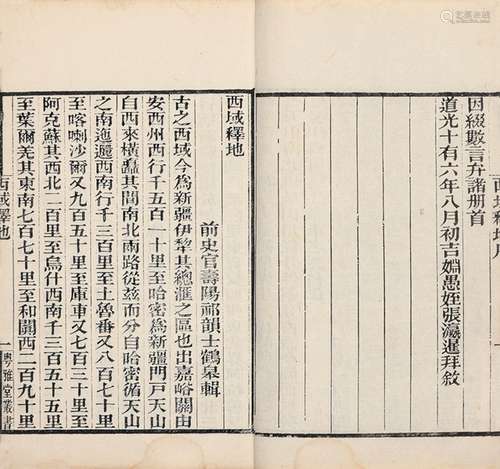 因綴數言弁諸册首
道光十有六年八月初吉姻愚姪張瀛暹拜敘
西域釋地
前史官壽陽祁韻士鶴皋輯
古之西域今爲新疆伊犂其總滙之區也出嘉峪關由
安西州西行千五百一十里至哈密爲新疆門戸天山
自西來橫矗其間南北兩路從茲而分自哈密循天山
之南迤邐西南行千三百里至土魯番又八百七十里
至喀喇沙爾又九百五十里至庫車又七百三十里至
阿克蘇其西北二百里至烏什西南千三百五十五里
至葉爾羌其東南七百七十里至和闐西二百九十里
西域釋地 一 粵雅堂叢書